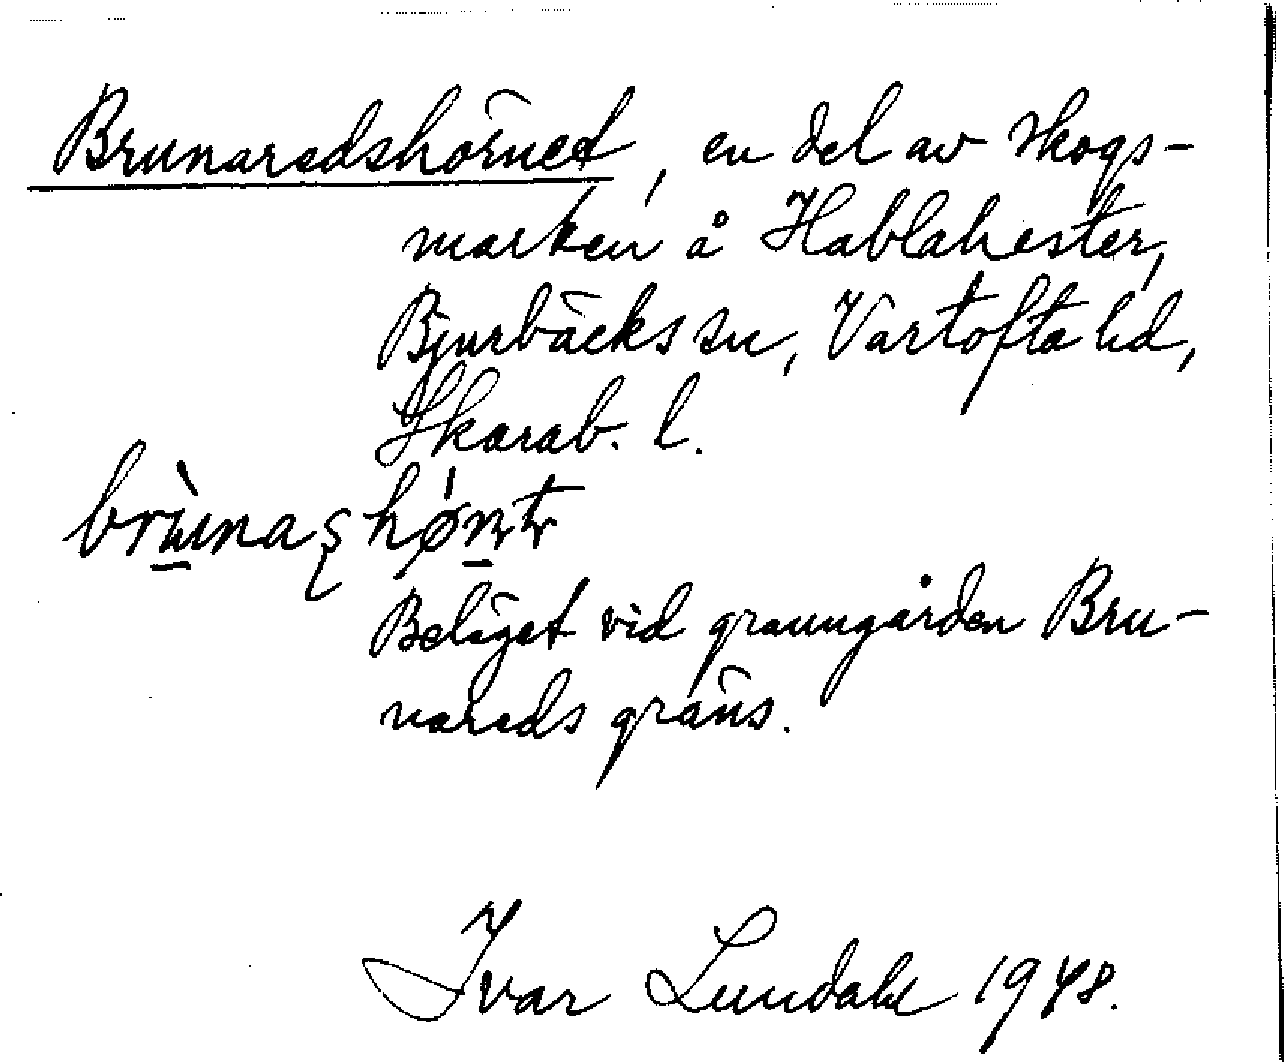 Brunaredshörnet, en del av skogs-
marken å Hablahester,
Bjurbäcks sn, Vartofta hd,
Skarab. l.
Beläget vid granngården Bru-
nareds gräns.
Ivar Lundahl 1948.